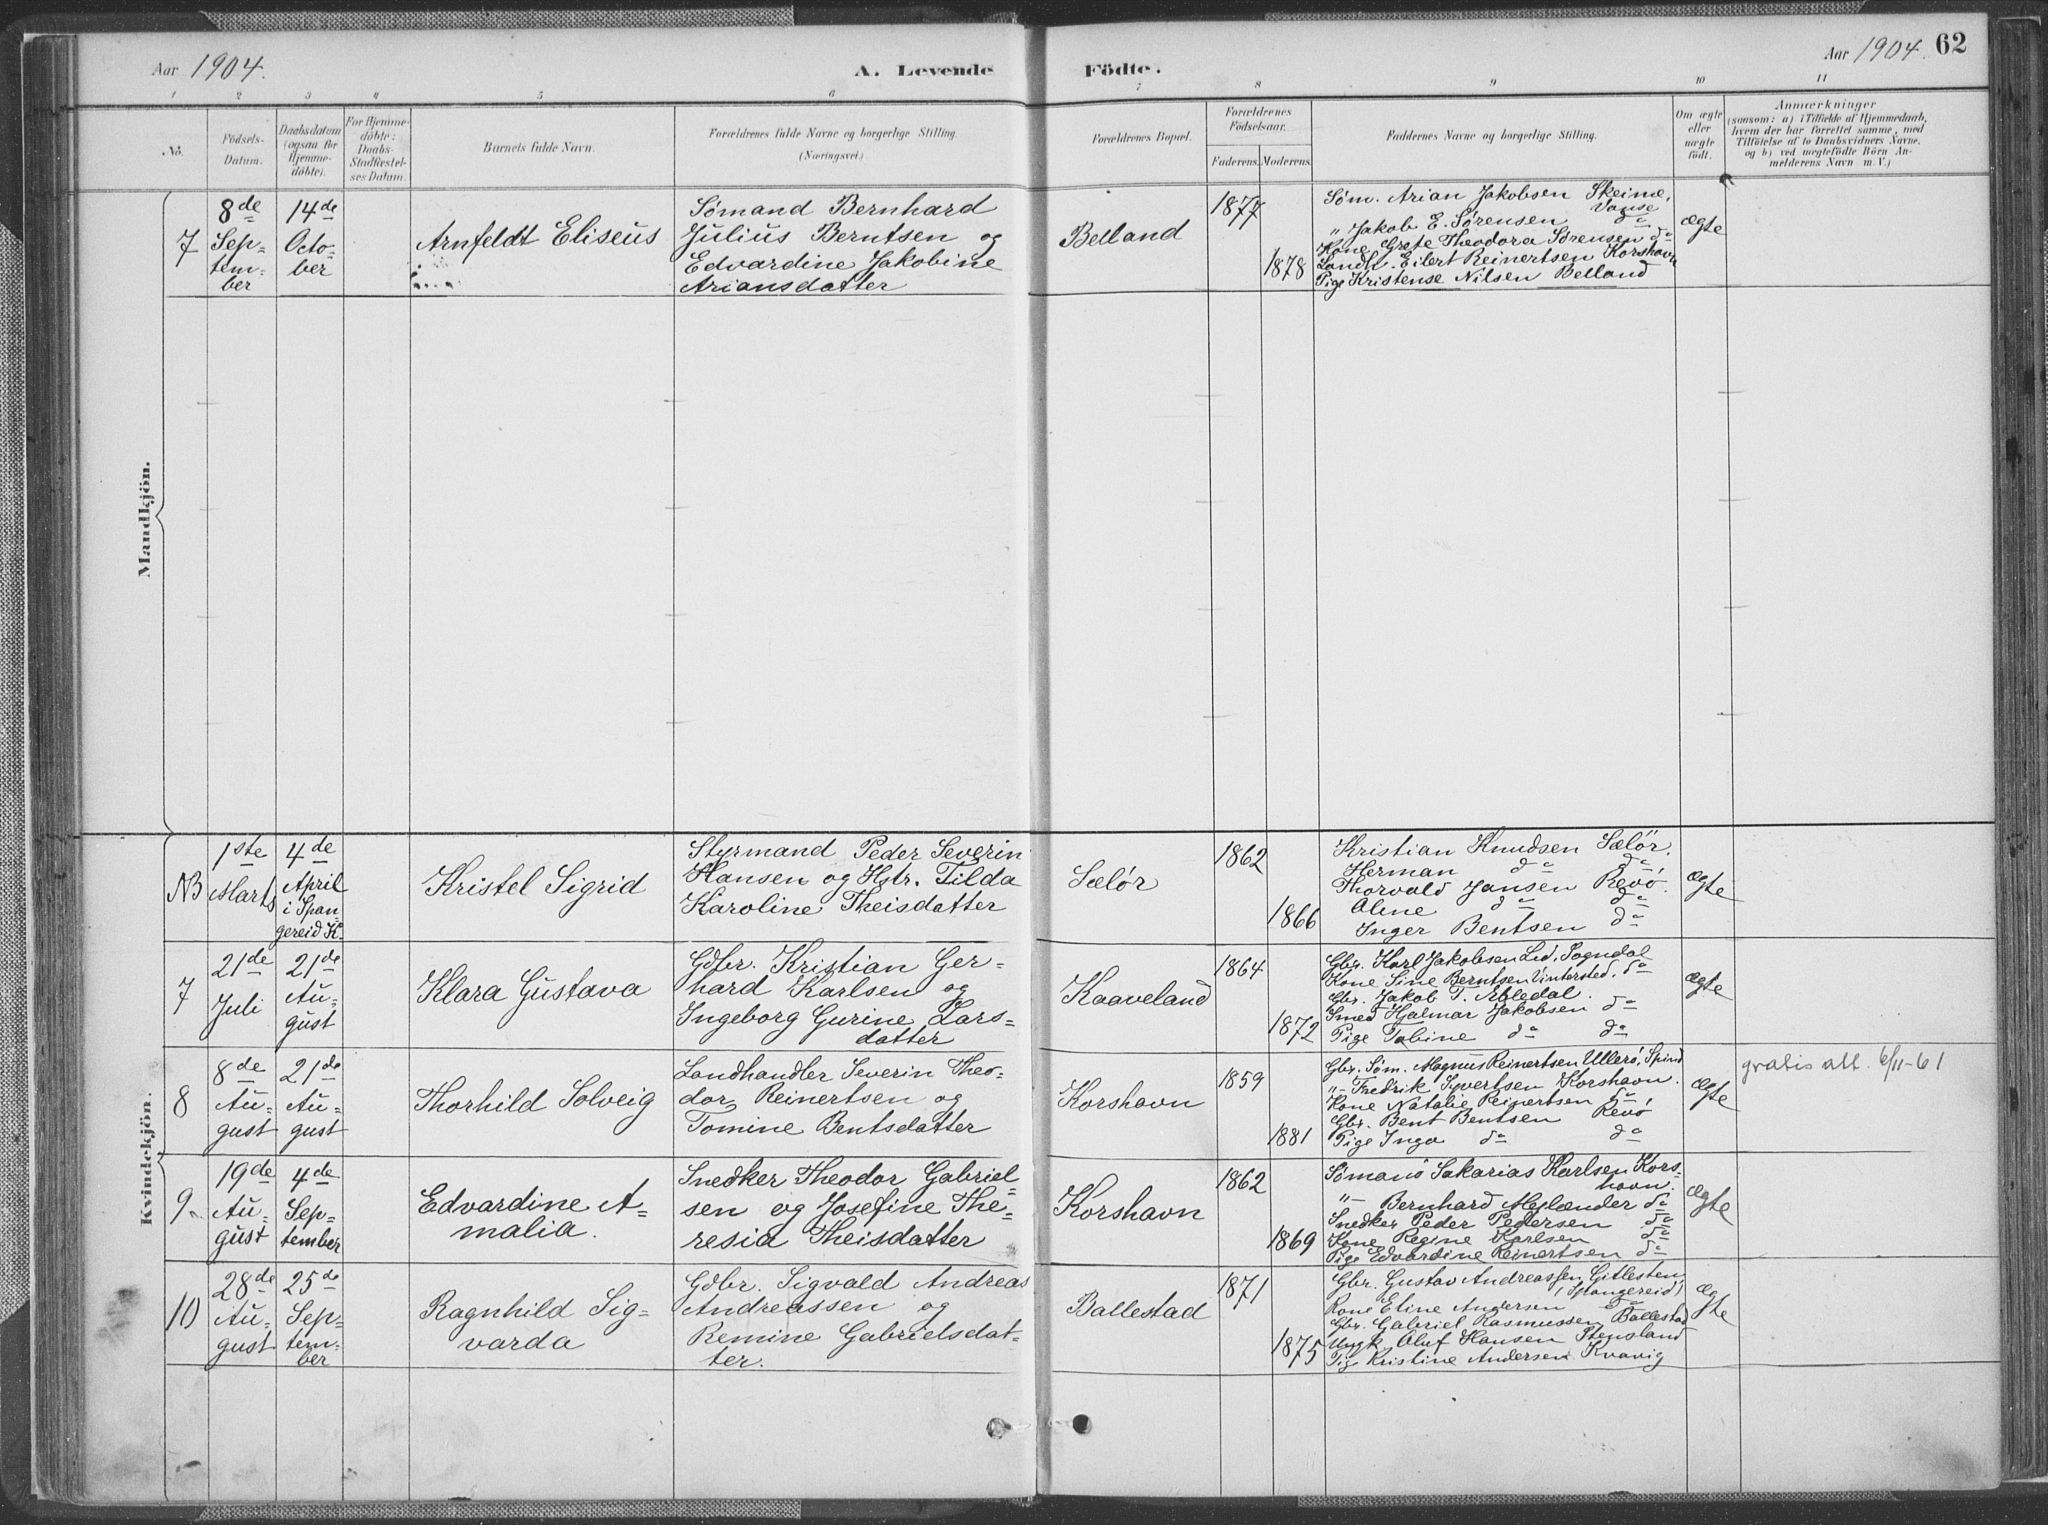 Aar 1904.
A. Levende
Födte.
Aar 1904. 62
1 2 3 4 5 6 7 8 9 10 11
No.
Födsels-
Datum.
Daabsdatum
(ogsaa for
Hjemme-
döbte).
For Hjemme-
döbte:
Daabs-
Stadfæstel-
ses Datum.
Barnets fulde Navn.
Forældrenes fulde Navne og borgerlige Stilling.
(Næringsvei.)
Forældrenes Bopæl.
Forældrenes
Födselsaar.
Faderens.
Moderens.
Faddernes Navne og borgerlige Stilling.
Om ægte
eller
uægte
födt.
Anmærkninger
(saasom: a) i Tilfælde af Hjemmedaab,
hvem der har forrettet samme, med
Tilföielse af to Daabsvidners Navne,
og b) ved uægtefödte Börn An-
melderens Navn m. V.)
Mandkjön.
7
8de
Sep-
tem-
ber
14de
Octo-
ber
Arnfeldt Eliseus
Sømand Bernhard
Julius Berntsen og
Edvardine Jakobine
Ariansdatter
Belland
1877
1878
Søm. Arian Jakobsen Skeime,
Vanse
" Jakob E. Sørensen do
Kone Grete Theodora Sørensen do
Landh. Eilert Reinertsen Korshavn
Pige Kristense Nilsen Belland
ægte
Kvindekjön.
NB
1ste
Marts
4de
April
i Span-
gereid K.
Kristel Sigrid
Styrmand Peder Severin
Hansen og Hstr. Tilda
Karoline Theisdatter
Sælør
1862
1866
Kristian Knudsen Sælør.
Herman do do
Thorvald Jansen Revö.
Aline do do
Inger Bentsen do
ægte
7
21de
Juli
21de
Au-
gust
Klara Gustava
Gdbr. Kristian Ger-
hard Karlsen og
Ingeborg Gurine Lars-
datter
Kaaveland
1864
1872
Gbr. Karl Jakobsen Lid, Sogndal
Kone Sine Berntsen Vintersted, do
Gbr. Jakob T. Ableda l.
Smed Hjalmar Jakobsen do
Pige Tobine do do
ægte
8
8de
Au-
gust
21de
Au-
gust
Thorhild Solveig
Landhandler Severin Theo-
dor Reinertsen og
Tomine Bentsdatter
Korshavn
1859
1881
Gbr. Søm. Magnus Reinertsen Ullerö, Spind
"- Fredrik Syvertsen Korshavn.
Kone Natalie Reinertsen do
Gbr. Bent Bentsen Revö
Pige Inga do do
ægte
gratis att. 6/11-61
9
19de
Au-
gust
4de
Sep-
tember
Edvardine A-
malia.
Snedker Theodor Gabriel-
sen og Josefine The-
resia Theisdatter
Korshavn
1862
1869
Sømand Sakarias Karlsen Kors-
havn.
"- Bernhard Meylænder do
Snedker Peder Pedersen do
Kone Regine Karlsen do
Pige Edvardine Reinertsen do
ægte
10
28de
Au-
gust
25de
Sep-
tem-
ber
Ragnhild Sig-
varda
Gdbr. Sigvald Andreas
Andreassen og
Remine Gabrielsdat-
ter.
Ballestad
1871
1875
Gbr. Gustav Andreassen Gitlesten,
(Spangereid)
Kone Eline Andersen do
Gbr. Gabriel Rasmussen Ballestad
Ungk. Oluf Hansen Stensland
Pig. Kristine Andersen Kvavig
ægte